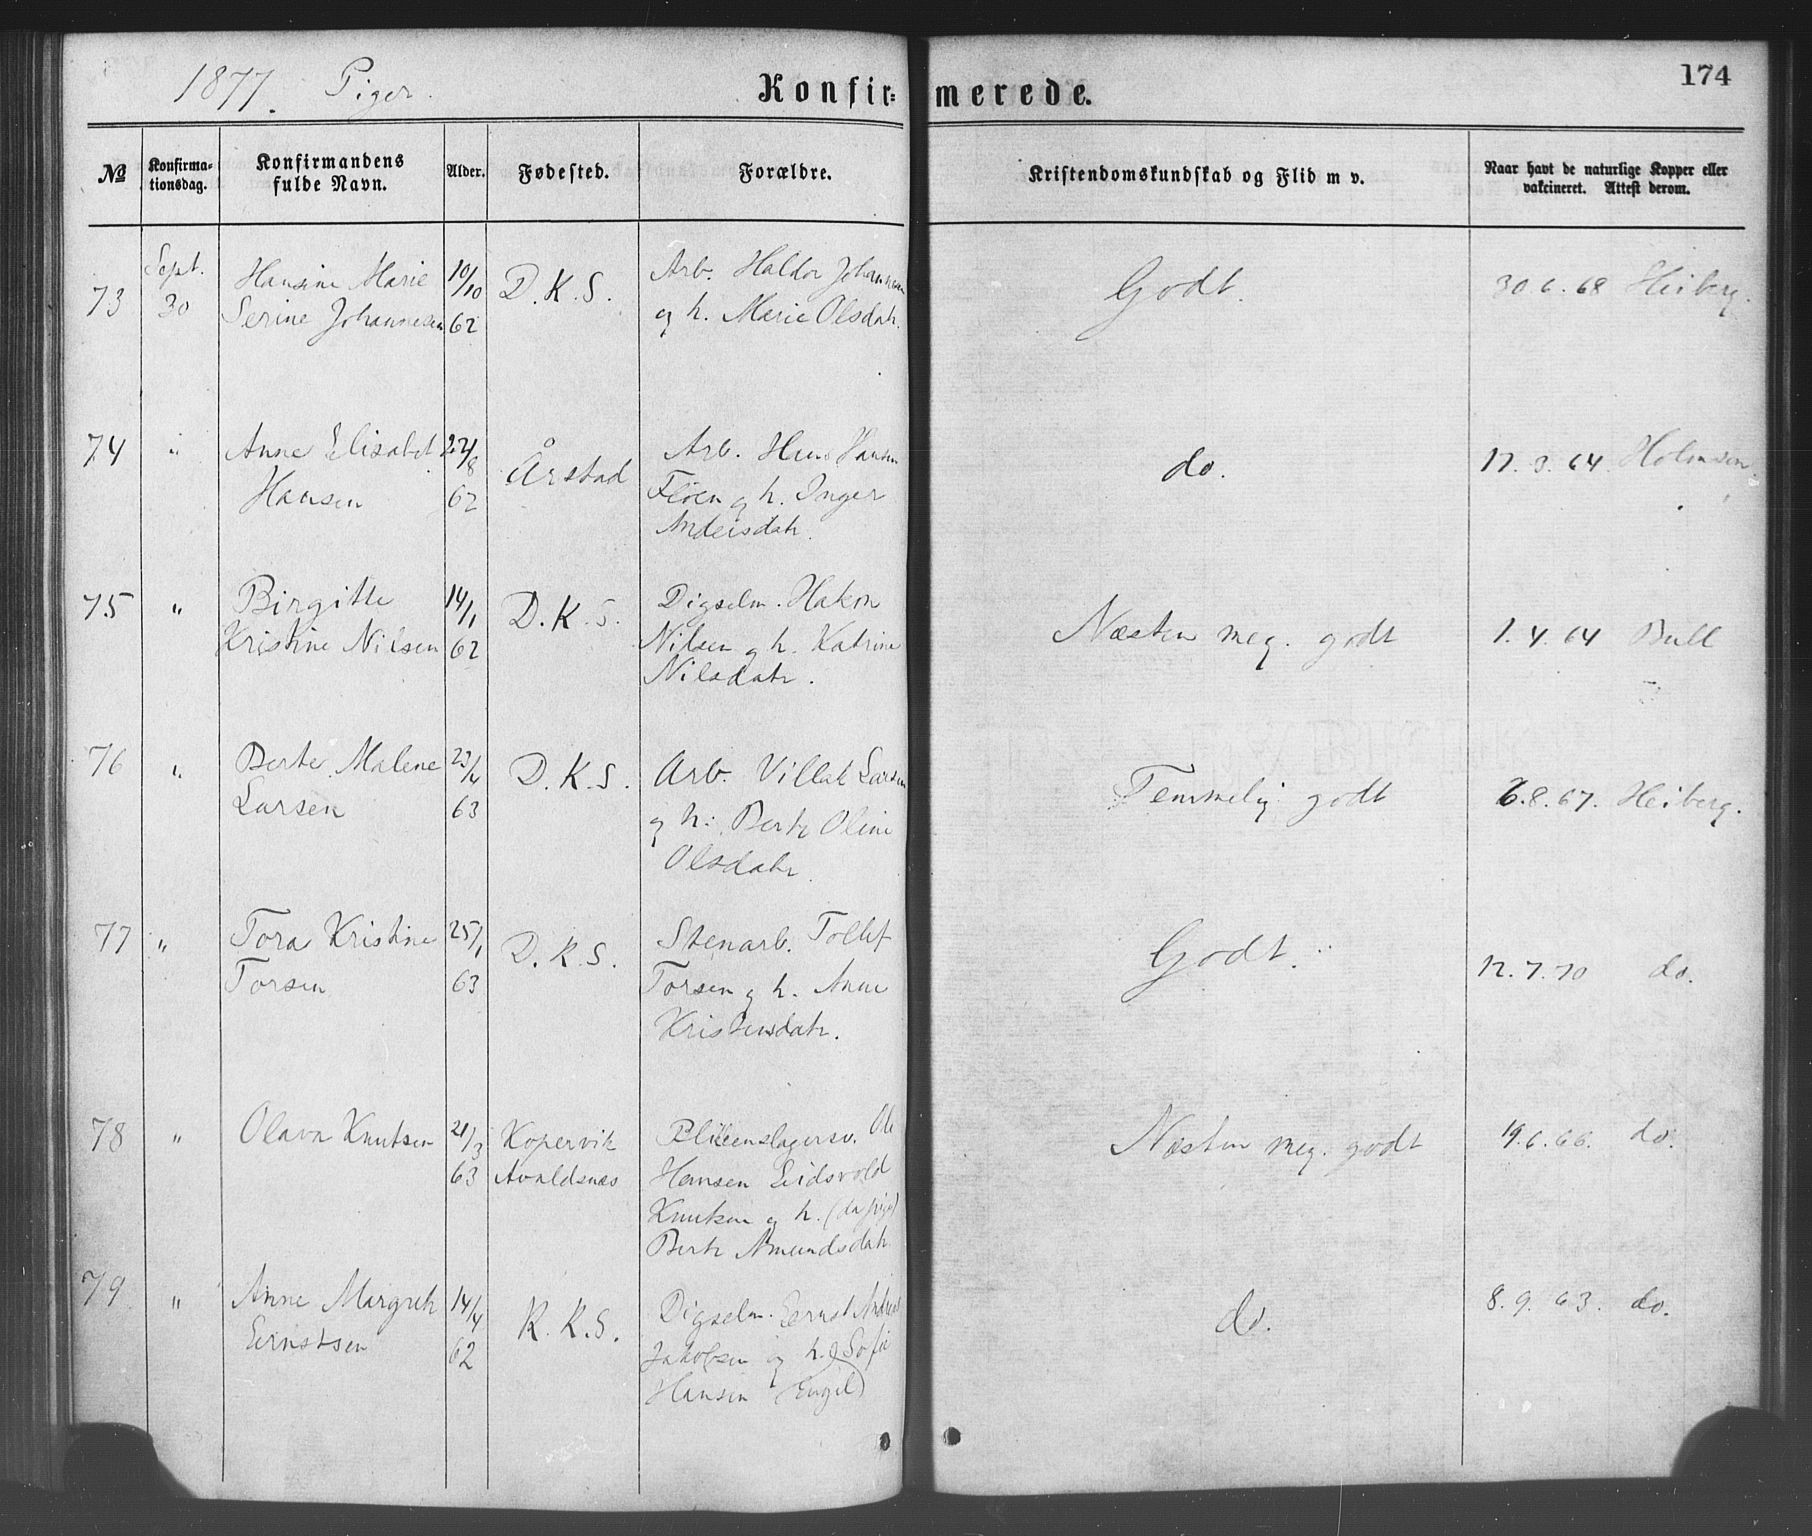 1877. Piger.
Konfir=merede.
174
№
Konfirma-
tionsdag.
Konfirmandens
fulde Navn.
Alder.
Fødested.
Forældre.
Kristendomskundskab og Flid m v.
Naar havt de naturlige Kopper eller
vakcineret. Attest derom.
73
Sept.
30
Hansine Marie
Serine Johannesen
10/10
62
D. K. S.
Arb. Haldor Johannesen
og h. Marie Olsdatr.
Godt.
30 6. 68 Heiberg.
74
"
Anne Elisabet
Hansen
22/8
62
Årstad
Arb. Hans Hansen
Fløen og h. Inger
Andersdatr.
do.
64. Holmsen.
75
"
Birgitte
Kristine Nilsen
14/1
62
D. K. S.
Digselm. Hakon
Nilsen og h. Katrine
Nilsdatr.
Næsten meg. godt
1. 4. 64 Bull
76
"
Berte Malene
Larsen
23/4
63
D. K. S.
Arb. Villak Larsen
og h. Berte Oline
Olsdatr.
Temmelig godt
6. 8. 67. Heiberg.
77
"
Tora Kristine
Torsen
25/1
63
D. K. S.
Stenarb. Tollef
Torsen og h. Anne
Kristensdatr.
Godt.
12. 7. 70 do.
78
"
Olava Knutsen
21/3
63
Kopervik
Avaldsnæs
Blikkenslagersv. Ole
Hansen Eidsvold
Knutsen og h. (da pige)
Berte Amundsdatr.
Næsten meg. godt
19. 6. 66. do.
79
"
Anne Margrete
Ernstsen
14/4
62
K. K. S.
Digselm. Ernst Andreas
Jakobsen og h. Sofie
Hansen (Engel)
do.
8. 9. 63. do.